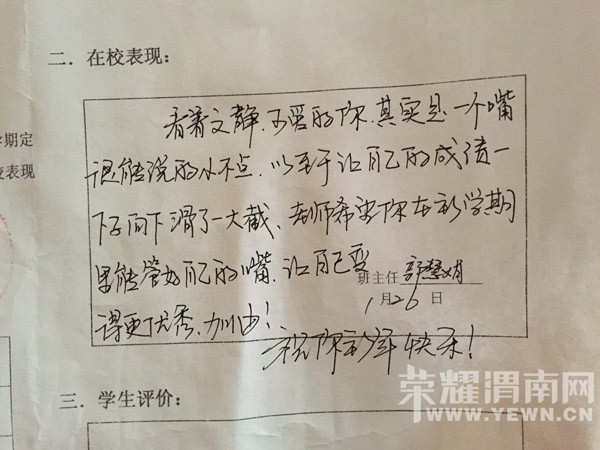 二．在校表现：
看着文静、可爱的你，其实是一个嘴
很能说的小不点，以至于让自己的成绩一
下子向下滑了一大截，老师希望你在新学期
里能管好自己的嘴，让自己变
得更优秀，加油！
班主任
1月26日
祝你新年快乐！
学期定
校表现
三．学生评价：
荣耀渭南网
WWW.YEWN.CN